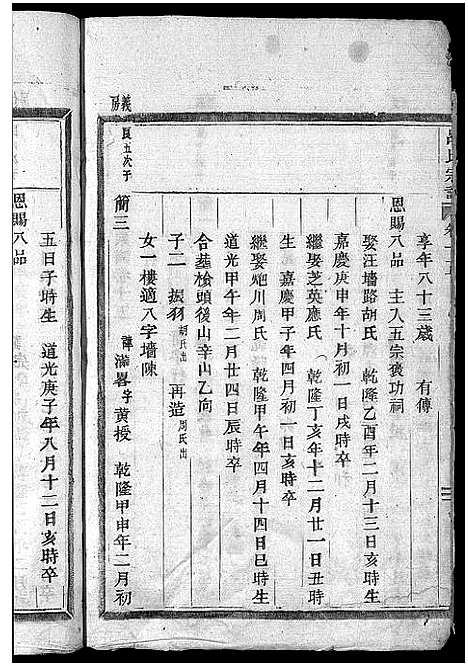 呂氏宗譜
享年八十三歲 有傳
恩賜八品 主入五宗褒功祠
娶汪墻路胡氏 乾隆乙酉年二月十三日亥時生
嘉慶庚申年十月初一日戌時卒
繼娶芝英應氏 乾隆丁亥年十二月廿一日丑時
生 嘉慶甲子年四月初一日亥時卒
繼娶炮川周氏 乾隆甲午年四月十四日巳時生
道光甲午年二月廿四日辰時卒
合葬槍頭後山辛山乙向
子二 振羽胡氏出 再造周氏出
女一 樓適八字墻陳
義房
良五次子 簡三 諱滿畧字黃授 乾隆甲申年二月初
五日子時生 道光庚子年八月十二日亥時卒
恩賜八品